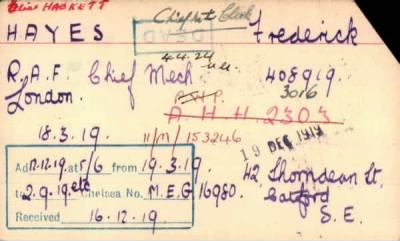 Alias HACKETT
Chief Clerk
HAYES Frederick
DEAD
4.4.24
R.A.F. Chief Mech 408919.
London. 3016
A.H.H. 2303
18.3.19. 11/M/153246
19 DEC 1919
Ad 17.12.19. at 5/6 from 19.3.19.
to 2.9.19. etc Chelsea No. M.E.G 16980.
Received 16.12.19
42 Thorndean St.
Catford
S.E.